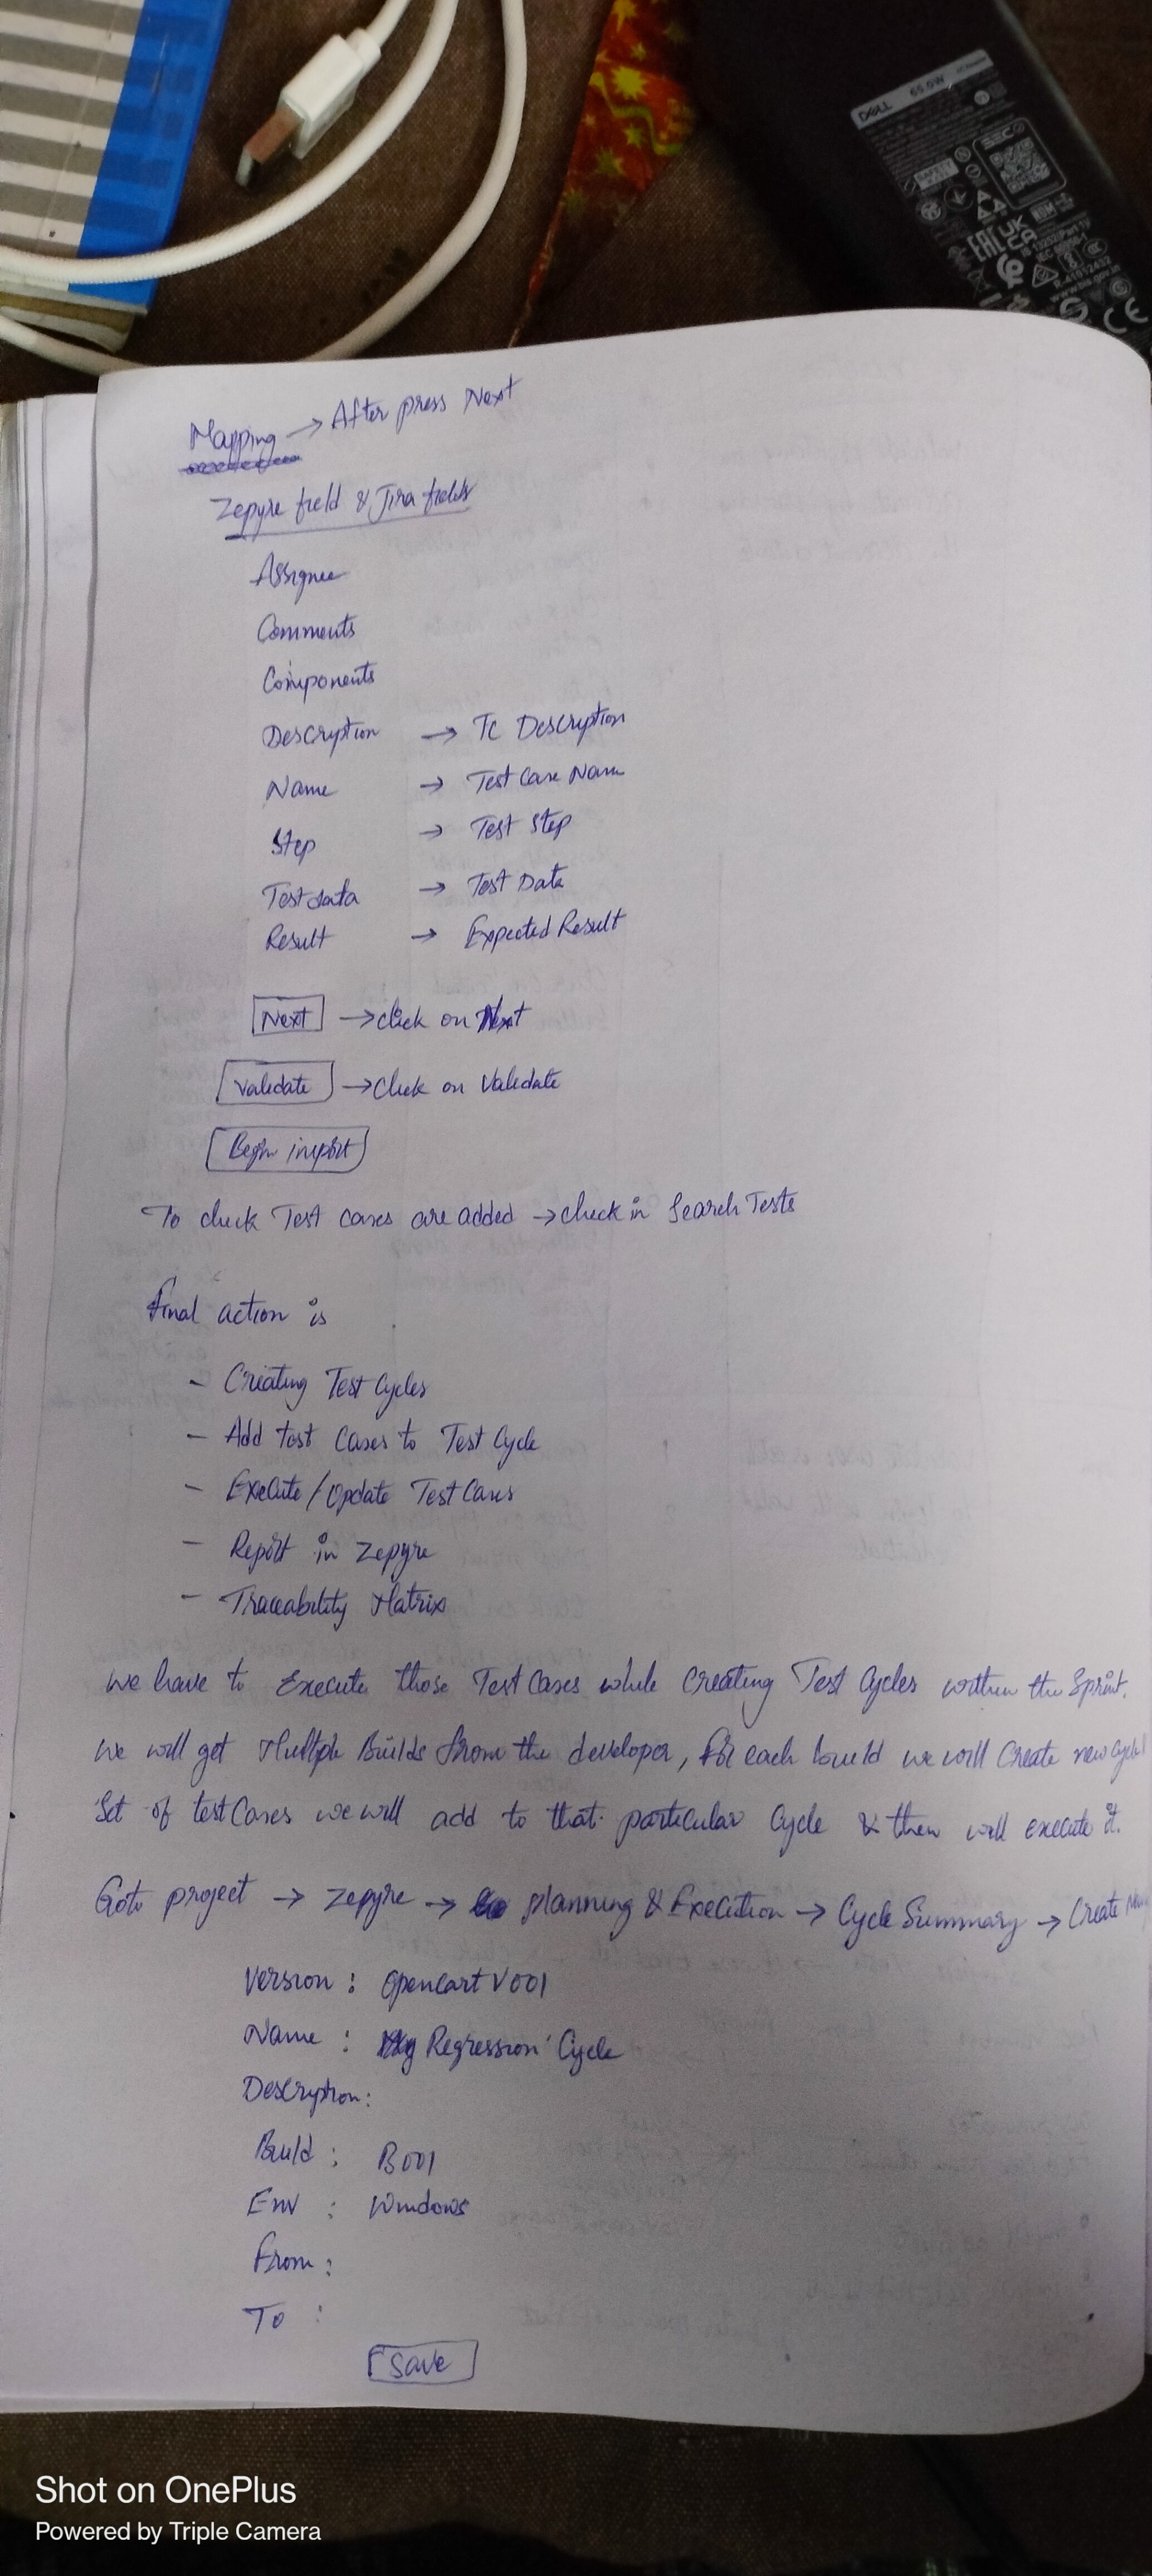 DELL 65.0W
EAC
UK
CA
IEC 60950-1
R-41012432
www.bis.gov.in
CE
Mapping → After press Next
Zepyre field & Jira fields
Assignee
Comments
Components
Description → Tc Description
Name → Test Case Name
Step → Test Step
Test data → Test Data
Result → Expected Result
Next → click on Next
Validate → Click on Validate
Begin import
To check Test cases are added → check in Search Tests
Final action is
- Creating Test Cycles
- Add test Cases to Test Cycle
- Execute / Update Test Cases
- Report in Zepyre
- Traceability Matrix
We have to Execute those Test Cases while Creating Test Cycles within the Sprint.
We will get Multiple Builds from the developer, for each build we will Create new cycle
Set of test Cases we will add to that particular Cycle & then will execute it.
Goto project → Zepyre → planning & Execution → Cycle Summary → Create
Version : Opencart V001
Name : Regression Cycle
Description:
Build : B001
Env : Windows
From :
To :
Save
Shot on OnePlus
Powered by Triple Camera